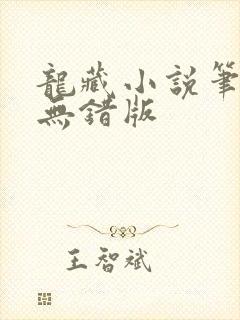 龍藏小說筆
無錯版
王智斌